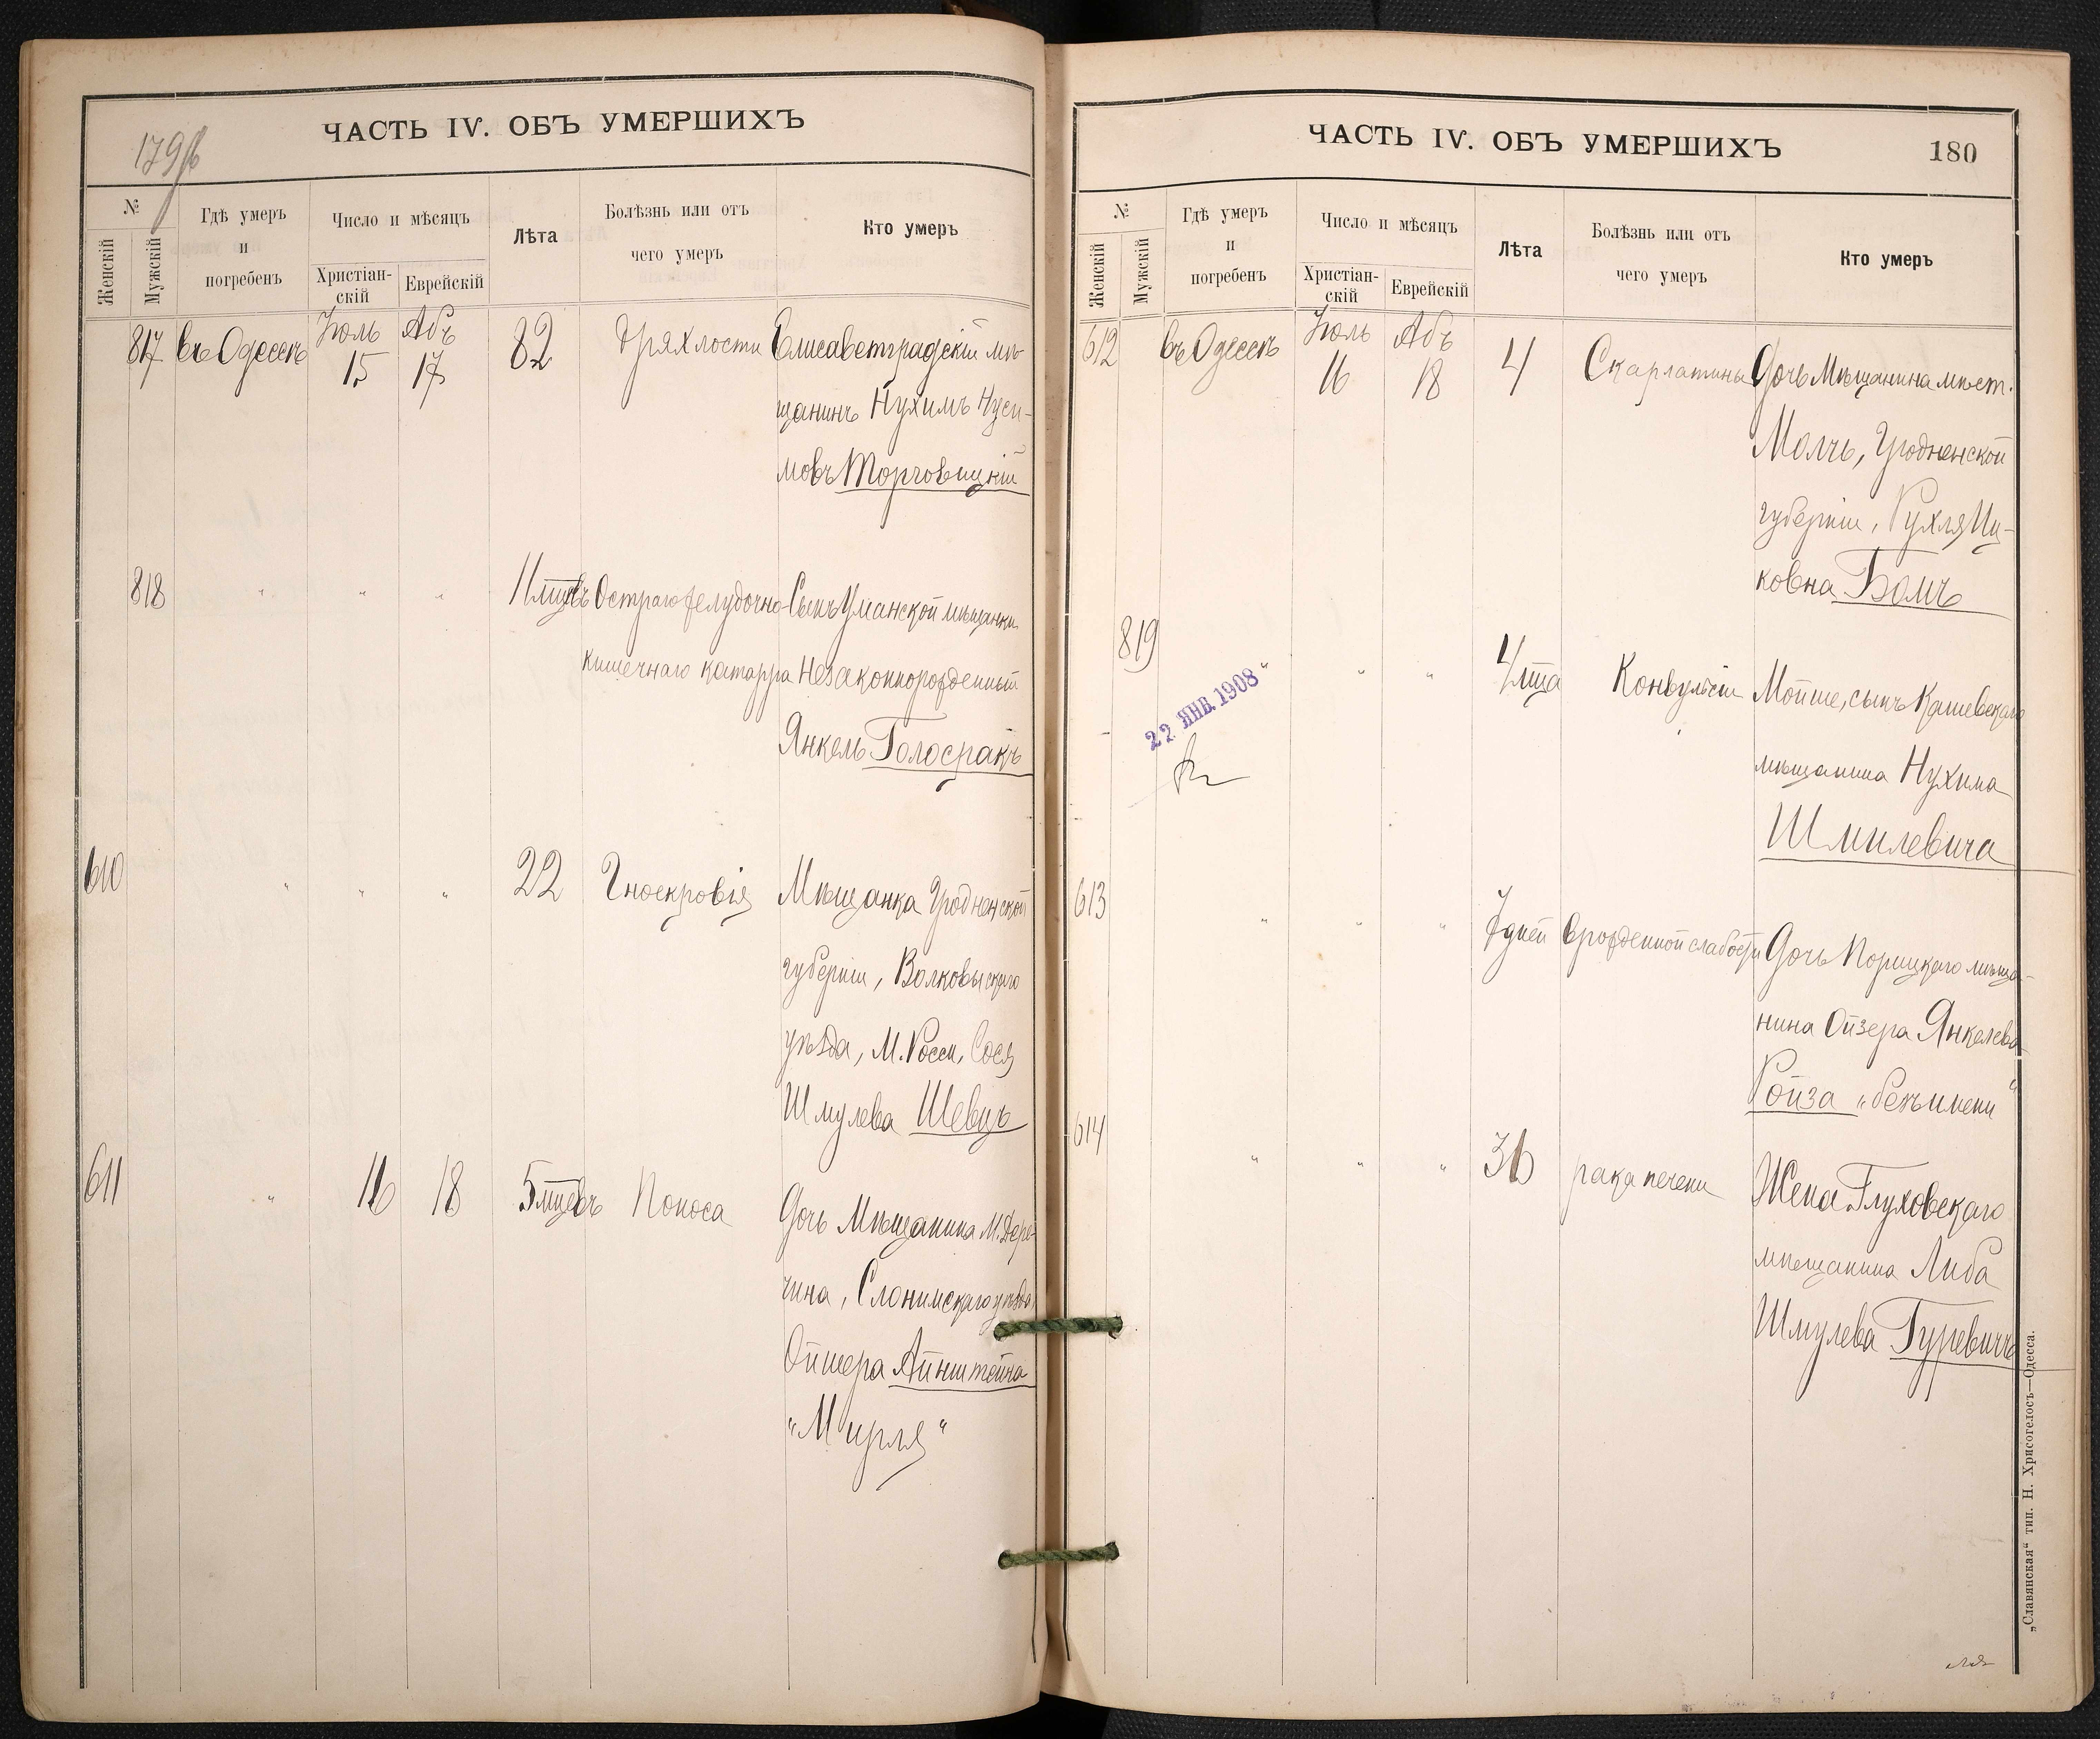 179 об
ЧАСТЬ IV. ОБЪ УМЕРШИХЪ
№
Женскій
Мужскій
Гдѣ умеръ
и
погребенъ
Число и мѣсяцъ
Христіан-
скій
Еврейскій
Лѣта
Болѣзнь или отъ
чего умеръ
Кто умеръ
817 въ Одессѣ Іюль 15 Абъ 17 82 Дряхлости Елисаветградскій мѣ-
щанинъ Нухимъ Нуси-
мовъ Торговицкій
818 " " " 11 мцевъ Остраго желудочно- Сынъ Уманской мѣщанки
кишечнаго катарра Незаконнорожденный
Янкель Голосракъ
610 " " " 22 Гноекровія Мѣщанка Гродненской
губерніи, Волковыскаго
уѣзда, М. Росси, Сося
Шмулева Шевцъ
611 " 16 18 5 мцевъ Поноса Дочь Мѣщанина М. Дере-
чина, Слонимскаго уѣзда,
Ойшера Айнштейна
"Мирля"
ЧАСТЬ IV. ОБЪ УМЕРШИХЪ
180
№
Женскій
Мужскій
Гдѣ умеръ
и
погребенъ
Число и мѣсяцъ
Христіан-
скій
Еврейскій
Лѣта
Болѣзнь или отъ
чего умеръ
Кто умеръ
612 въ Одессѣ Іюль 16 Абъ 18 4 Скарлатины Дочь Мѣщанина мѣст.
Молчъ, Гродненской
губерніи, Рухля Иц-
ковна Бомъ
819 " " " 4 мца Конвульсіи Мойше, сынъ Кашевскаго
22 ЯНВ 1908
мѣщанина Нухима
Шмилевича
613 " " " 7 дней Врожденной слабости Дочь Порицкаго мѣща-
нина Ойзера Янкелева
Ройза "безъ имени"
614 " " " 36 рака печени Жена Глуховскаго
мѣщанина Либа
Шмулева Гуревичъ
„Славянская" тип. Н. Хрисогелосъ—Одесса.